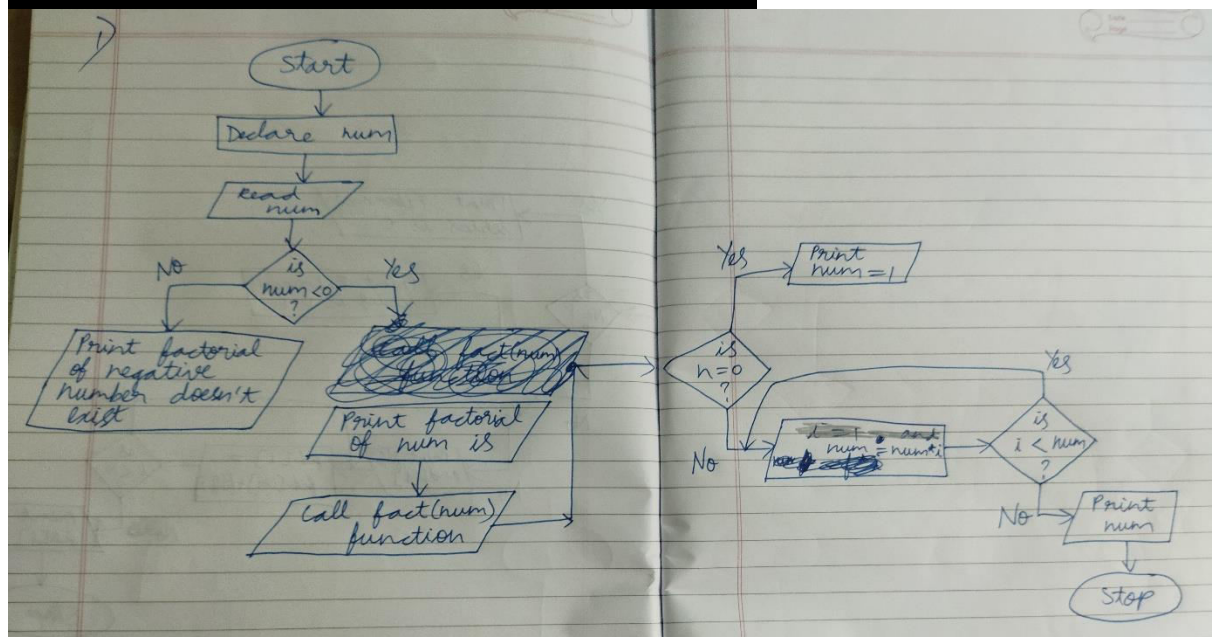 1)
Start
Declare num
Read
num
is
num<0
?
No
Yes
Print factorial
of negative
number doesn't
exist
Call fact(num)
function
Print factorial
of num is
Call fact(num)
function
is
n=0
?
Yes
Print
num=1
No
num = num*i
is
i < num
?
Yes
No
Print
num
Stop